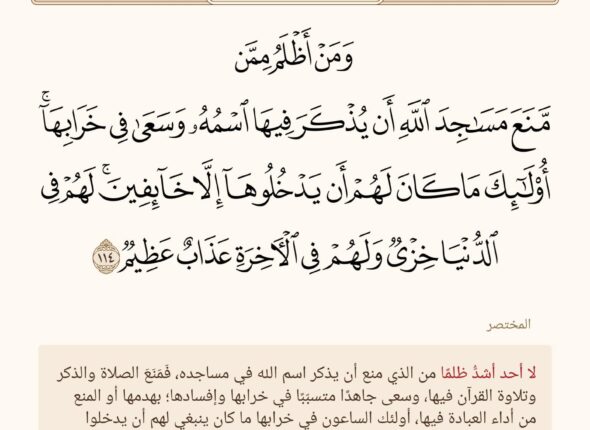 وَمَنْ أَظْلَمُ مِمَّن
مَّنَعَ مَسَـٰجِدَ ٱللَّهِ أَن يُذْكَرَ فِيهَا ٱسْمُهُۥ وَسَعَىٰ فِى خَرَابِهَآ ۚ
أُو۟لَـٰٓئِكَ مَا كَانَ لَهُمْ أَن يَدْخُلُوهَآ إِلَّا خَآئِفِينَ ۚ لَهُمْ فِى
ٱلدُّنْيَا خِزْىٌ وَلَهُمْ فِى ٱلْـَٔاخِرَةِ عَذَابٌ عَظِيمٌ ١١٤
المختصر
لا أحد أشدُّ ظلمًا من الذي منع أن يذكر اسم الله في مساجده، فَمَنَعَ الصلاة والذكر
وتلاوة القرآن فيها، وسعى جاهدًا متسبّبًا في خرابها وإفسادها؛ بهدمها أو المنع
من أداء العبادة فيها، أولئك الساعون في خرابها ما كان ينبغي لهم أن يدخلوا